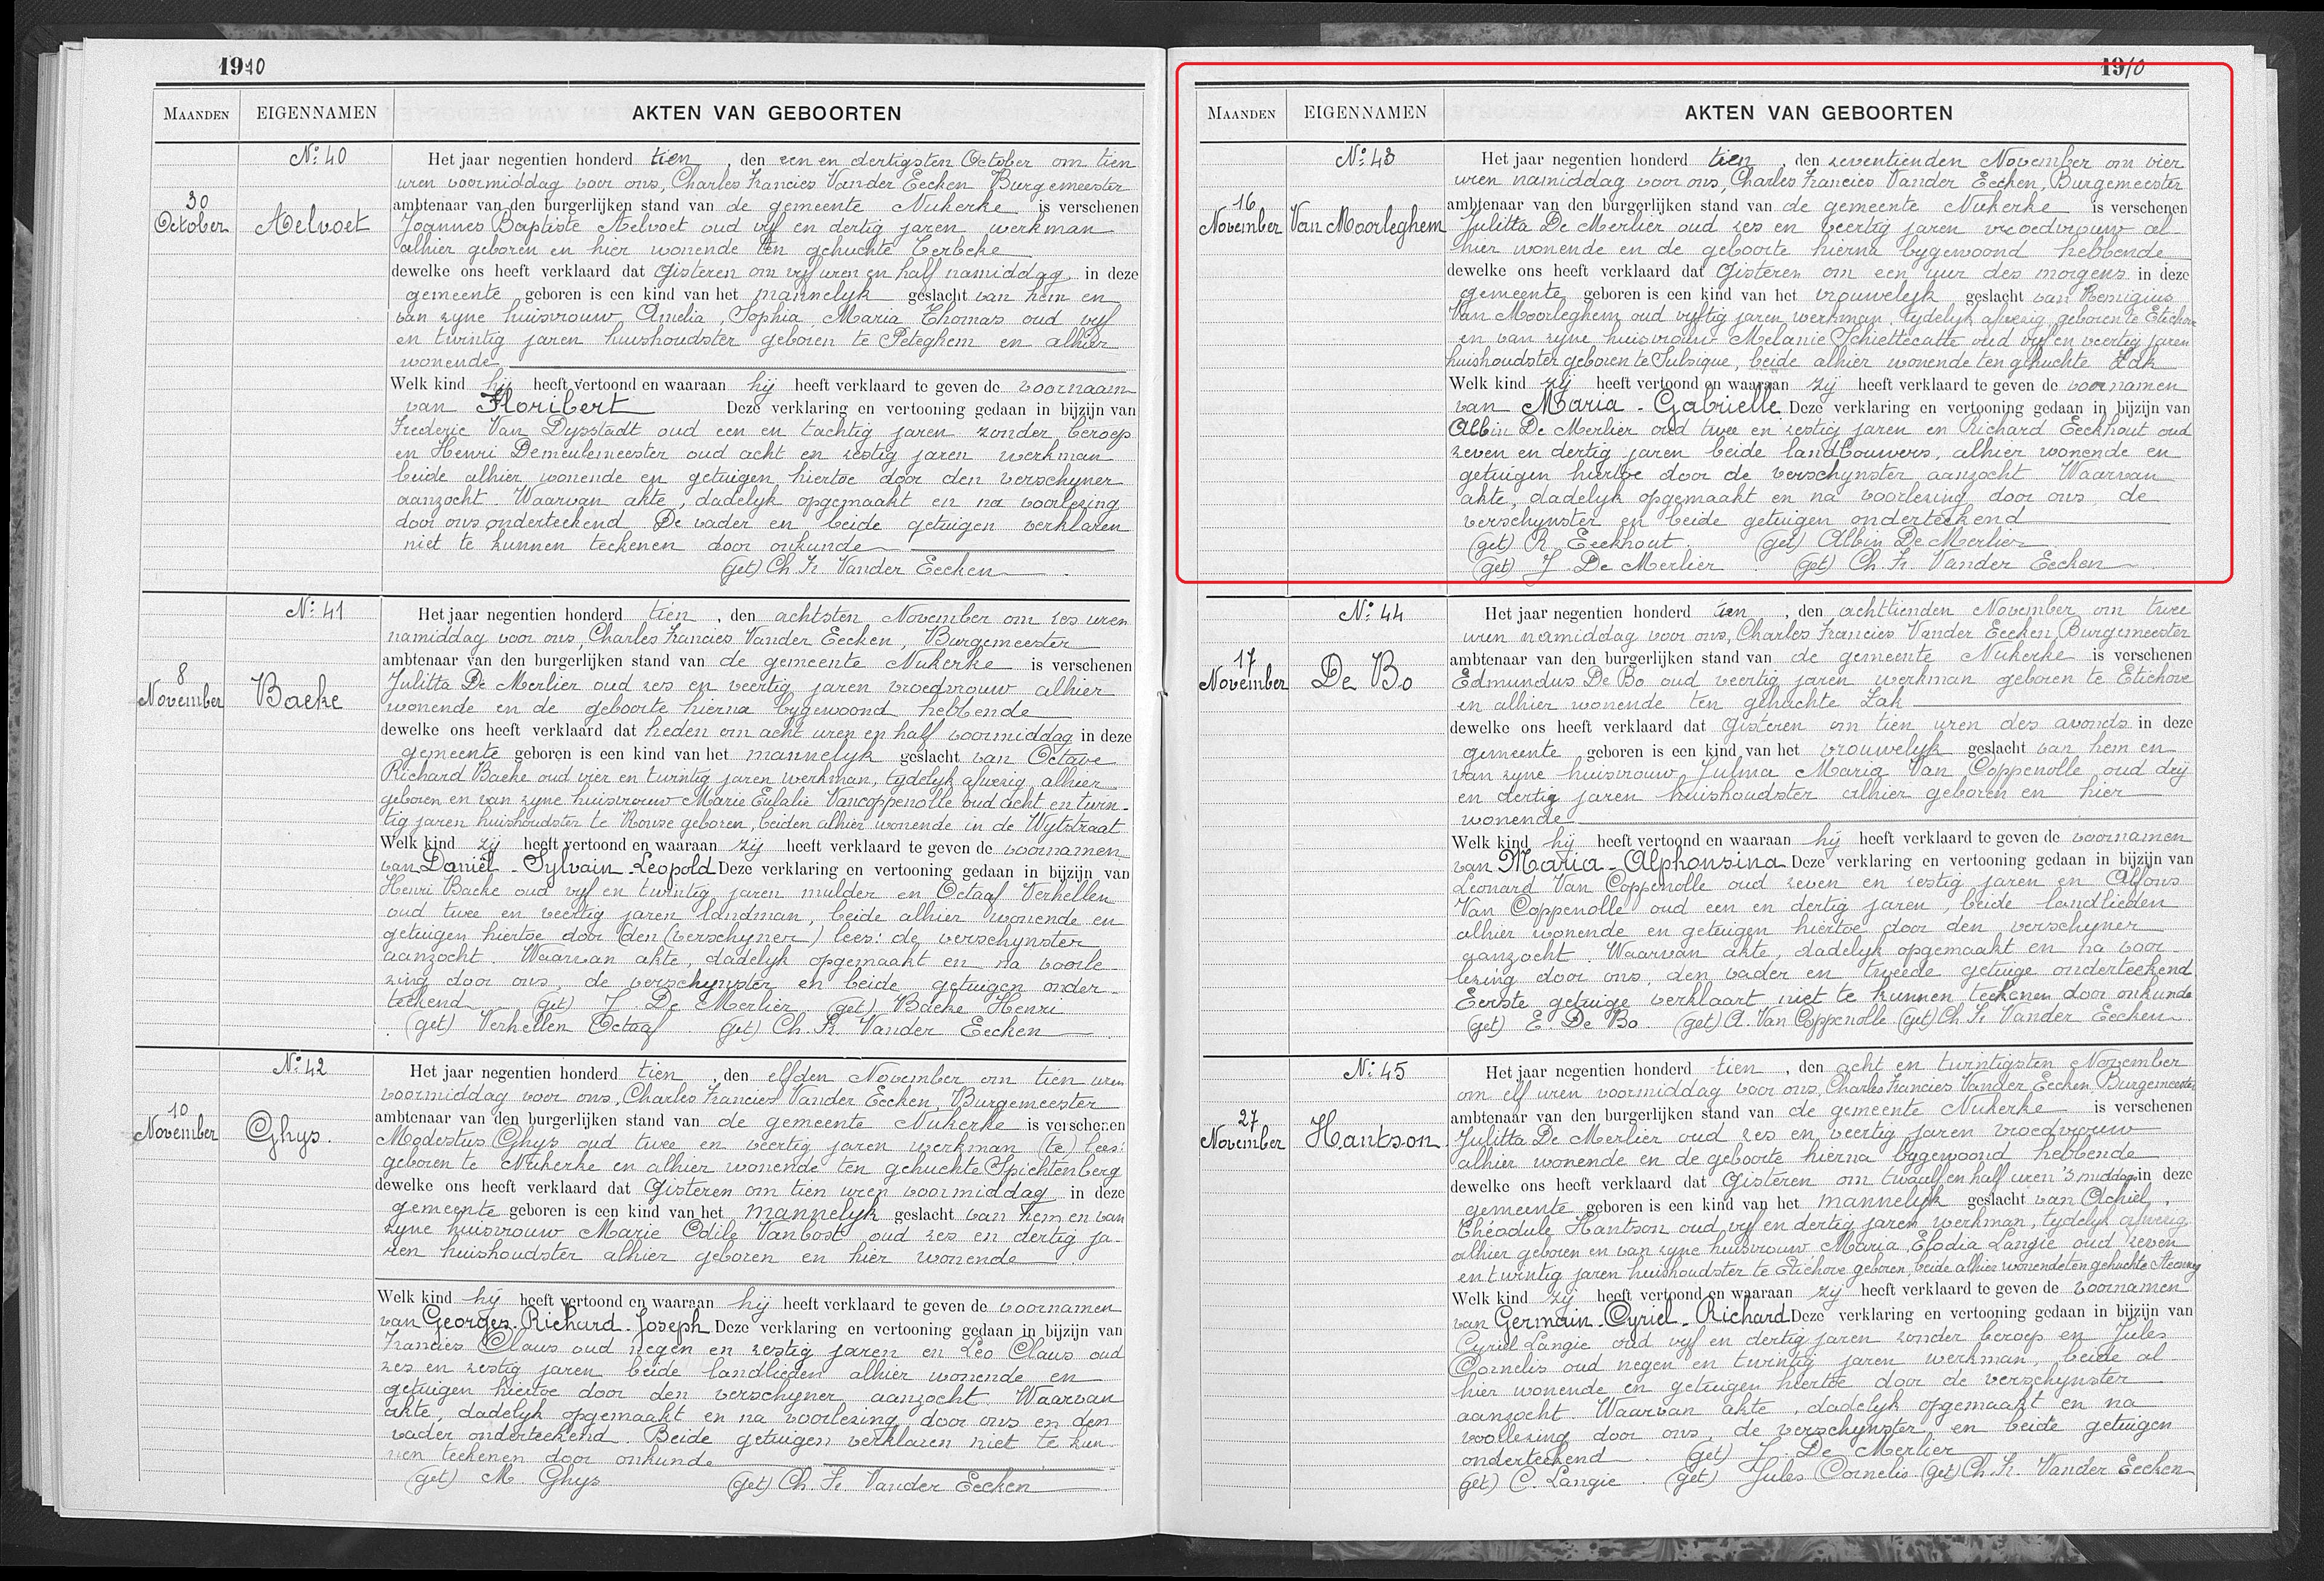 1910
MAANDEN EIGENNAMEN AKTEN VAN GEBOORTEN
No 40
30
October
Aelvoet
Het jaar negentien honderd tien, den een en dertigsten October om tien
uren voormiddag voor ons, Charles Francies Vander Eecken Burgemeester
ambtenaar van den burgerlijken stand van de gemeente Nukerke is verschenen
Joannes Baptiste Aelvoet oud vijf en dertig jaren werkman
alhier geboren en hier wonende ten gehuchte Eerbeke
dewelke ons heeft verklaard dat Gisteren om vijf uren en half namiddag in deze
gemeente geboren is een kind van het mannelyk geslacht van hem en
van zyne huisvrouw Amelia, Sophia, Maria Thomas oud vijf
en twintig jaren huishoudster geboren te Peteghem en alhier
wonende
Welk kind hij heeft vertoond en waaraan hij heeft verklaard te geven de voornaam
van Floribert Deze verklaring en vertooning gedaan in bijzijn van
Frederic Van Dysstadt oud een en tachtig jaren zonder beroep
en Henri Demeulemeester oud acht en zestig jaren werkman
beide alhier wonende en getuigen hiertoe door den verschyner
aanzocht. Waarvan akte, dadelyk opgemaakt en na voorlezing
door ons onderteekend. De vader en beide getuigen verklaren
niet te kunnen teekenen door onkunde
(get) Ch. Fr. Vander Eecken
No 41
8
November
Baeke
Het jaar negentien honderd tien, den achtsten November om zes uren
namiddag voor ons, Charles Francies Vander Eecken, Burgemeester
ambtenaar van den burgerlijken stand van de gemeente Nukerke is verschenen
Julitta De Merlier oud zes en veertig jaren vroedvrouw alhier
wonende en de geboorte hierna bygewoond hebbende
dewelke ons heeft verklaard dat heden om acht uren en half voormiddag in deze
gemeente geboren is een kind van het mannelyk geslacht van Octave
Richard Baeke oud vier en twintig jaren werkman, tydelyk afwezig, alhier
geboren en van zyne huisvrouw Marie Eulalie Vancoppenolle oud acht en twin-
tig jaren huishoudster te Ronse geboren, beiden alhier wonende in de Wytstraat
Welk kind zij heeft vertoond en waaraan zij heeft verklaard te geven de voornamen
van Daniël - Sylvain - Leopold Deze verklaring en vertooning gedaan in bijzijn van
Henri Baeke oud vyf en twintig jaren mulder en Octaaf Verhellen
oud twee en veertig jaren landman, beide alhier wonende en
getuigen hiertoe door den (verschyner) lees: de verschynster
aanzocht. Waarvan akte, dadelyk opgemaakt en na voorle-
zing door ons, de verschynster en beide getuigen onder-
teekend (get) J. De Merlier (get) Baeke Henri
(get) Verhellen Octaaf (get) Ch. Fr. Vander Eecken
No 42
10
November
Ghys.
Het jaar negentien honderd tien, den elfden November om tien uren
voormiddag voor ons, Charles Francies Vander Eecken, Burgemeester
ambtenaar van den burgerlijken stand van de gemeente Nukerke is verschenen
Modestus Ghys oud twee en veertig jaren werkman (te) lees:
geboren te Nukerke en alhier wonende ten gehuchte Spichtenberg
dewelke ons heeft verklaard dat Gisteren om tien uren voormiddag in deze
gemeente geboren is een kind van het mannelyk geslacht van hem en van
zyne huisvrouw Marie Odile Vanbost oud zes en dertig ja-
ren huishoudster alhier geboren en hier wonende
Welk kind hij heeft vertoond en waaraan hij heeft verklaard te geven de voornamen
van Georges - Richard - Joseph Deze verklaring en vertooning gedaan in bijzijn van
Francies Claus oud negen en zestig jaren en Leo Claus oud
zes en zestig jaren beide landlieden alhier wonende en
getuigen hiertoe door den verschyner aanzocht. Waarvan
akte, dadelyk opgemaakt en na voorlezing door ons en den
vader onderteekend. Beide getuigen verklaren niet te kun-
nen teekenen door onkunde
(get) M. Ghys (get) Ch. Fr. Vander Eecken
1910
MAANDEN EIGENNAMEN AKTEN VAN GEBOORTEN
No 43
16
November
Van Moorleghem
Het jaar negentien honderd tien, den zeventienden November om vier
uren namiddag voor ons, Charles Francies Vander Eecken, Burgemeester
ambtenaar van den burgerlijken stand van de gemeente Nukerke is verschenen
Julitta De Merlier oud zes en veertig jaren vroedvrouw al-
hier wonende en de geboorte hierna bygewoond hebbende
dewelke ons heeft verklaard dat Gisteren om een uur des morgens in deze
gemeente geboren is een kind van het vrouwelyk geslacht van Remigius
Van Moorleghem oud vyftig jaren werkman, tydelyk afwezig, geboren te Etichove
en van zyne huisvrouw Melanie Schiettecatte oud vyf en veertig jaren
huishoudster geboren te Sulsique, beide alhier wonende ten gehuchte Zak
Welk kind zij heeft vertoond en waaraan zij heeft verklaard te geven de voornamen
van Maria - Gabrielle Deze verklaring en vertooning gedaan in bijzijn van
Albin De Merlier oud twee en zestig jaren en Richard Eeckhout oud
zeven en dertig jaren beide landbouwers, alhier wonende en
getuigen hiertoe door de verschynster aanzocht. Waarvan
akte, dadelyk opgemaakt en na voorlezing door ons, de
verschynster en beide getuigen onderteekend
(get) R. Eeckhout (get) Albin De Merlier
(get) J. De Merlier (get) Ch. Fr. Vander Eecken
No 44
17
November
De Bo
Het jaar negentien honderd tien, den achttienden November om twee
uren namiddag voor ons, Charles Francies Vander Eecken, Burgemeester
ambtenaar van den burgerlijken stand van de gemeente Nukerke is verschenen
Edmundus De Bo oud veertig jaren werkman geboren te Etichove
en alhier wonende ten gehuchte Zak
dewelke ons heeft verklaard dat Gisteren om tien uren des avonds in deze
gemeente geboren is een kind van het vrouwelyk geslacht van hem en
van zyne huisvrouw Julma Maria Van Coppenolle oud drij
en dertig jaren huishoudster alhier geboren en hier
wonende
Welk kind hij heeft vertoond en waaraan hij heeft verklaard te geven de voornamen
van Maria - Alphonsina Deze verklaring en vertooning gedaan in bijzijn van
Leonard Van Coppenolle oud zeven en zestig jaren en Alfons
Van Coppenolle oud een en dertig jaren, beide landlieden
alhier wonende en getuigen hiertoe door den verschyner
aanzocht. Waarvan akte, dadelyk opgemaakt en na voor-
lezing door ons, den vader en tweede getuige onderteekend.
Eerste getuige verklaart niet te kunnen teekenen door onkunde
(get) E. De Bo (get) A. Van Coppenolle (get) Ch. Fr. Vander Eecken
No 45
27
November
Hantson
Het jaar negentien honderd tien, den acht en twintigsten November
om elf uren voormiddag voor ons, Charles Francies Vander Eecken Burgemeester
ambtenaar van den burgerlijken stand van de gemeente Nukerke is verschenen
Julitta De Merlier oud zes en veertig jaren vroedvrouw
alhier wonende en de geboorte hierna bygewoond hebbende
dewelke ons heeft verklaard dat Gisteren om twaalf en half uren 's middags in deze
gemeente geboren is een kind van het mannelyk geslacht van Achiel,
Théodule Hantson oud vyf en dertig jaren werkman, tydelyk afwezig
alhier geboren en van zyne huisvrouw Maria Elodia Langie oud zeven
en twintig jaren huishoudster te Etichove geboren, beide alhier wonende ten gehuchte
Welk kind zij heeft vertoond en waaraan zij heeft verklaard te geven de voornamen
van Germain - Cyriel - Richard Deze verklaring en vertooning gedaan in bijzijn van
Cyriel Langie oud vyf en dertig jaren zonder beroep en Jules
Cornelis oud negen en twintig jaren werkman, beide al
hier wonende en getuigen hiertoe door de verschynster
aanzocht. Waarvan akte, dadelyk opgemaakt en na
voorlezing door ons, de verschynster en beide getuigen
onderteekend. (get) J. De Merlier
(get) C. Langie. (get) Jules Cornelis (get) Ch. Fr. Vander Eecken